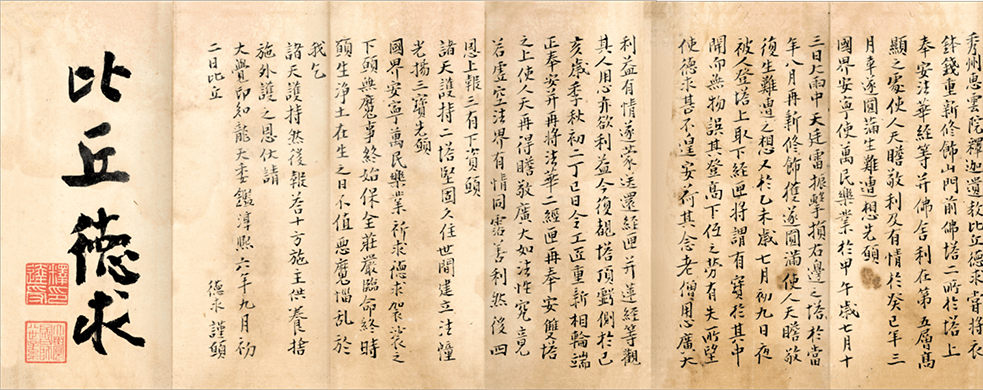 秀州惠雲院釋迦遺教比丘德求嘗將衣
鉢錢重新修佛山門前佛塔二所於塔上
奉安法華經等并佛舍利在第五層高
顯之處使人天瞻敬利及有情於癸巳年三
月幸遂圓滿生難遭想先願
國界安寧使萬民樂業於甲午歲七月十
三日大雨中天廷雷振擊損右邊之塔於當
年八月再新修飾獲遂圓滿使人天瞻敬
復生難遭之想又於乙未歲七月初九日夜
被人登塔上取下經匣將謂有寶於其中
開而無物誤其登高下位之勞有失所望
使德求其不遑安荷其念老僧用心廣大
利益有情遂蒙送還經匣并蓮經等觀
其人思亦欲利益今復覩塔頂虧側於己
亥歲季秋初二丁巳日令工匠重新相輪端
正奉安并再將法華二經再奉安雙塔
之上使人天再得瞻敬廣大如法性究竟
若虛空法界有情同霑善利然後四
恩上報三有下資願
諸天護持二塔堅固久住世間建立法幢
光揚三寶先願
國界安寧萬民樂業祈求德求袈裟之
下願無魔事終始保全莊嚴臨命終時
願生淨土在生之日不值惡魔惱亂於
我乞
諸天護持然後報荅十方施主供養捨
施外護之恩仕請
大覺印知龍天委鑑淳熙六年九月初
二日比丘 德求謹願
比丘德求